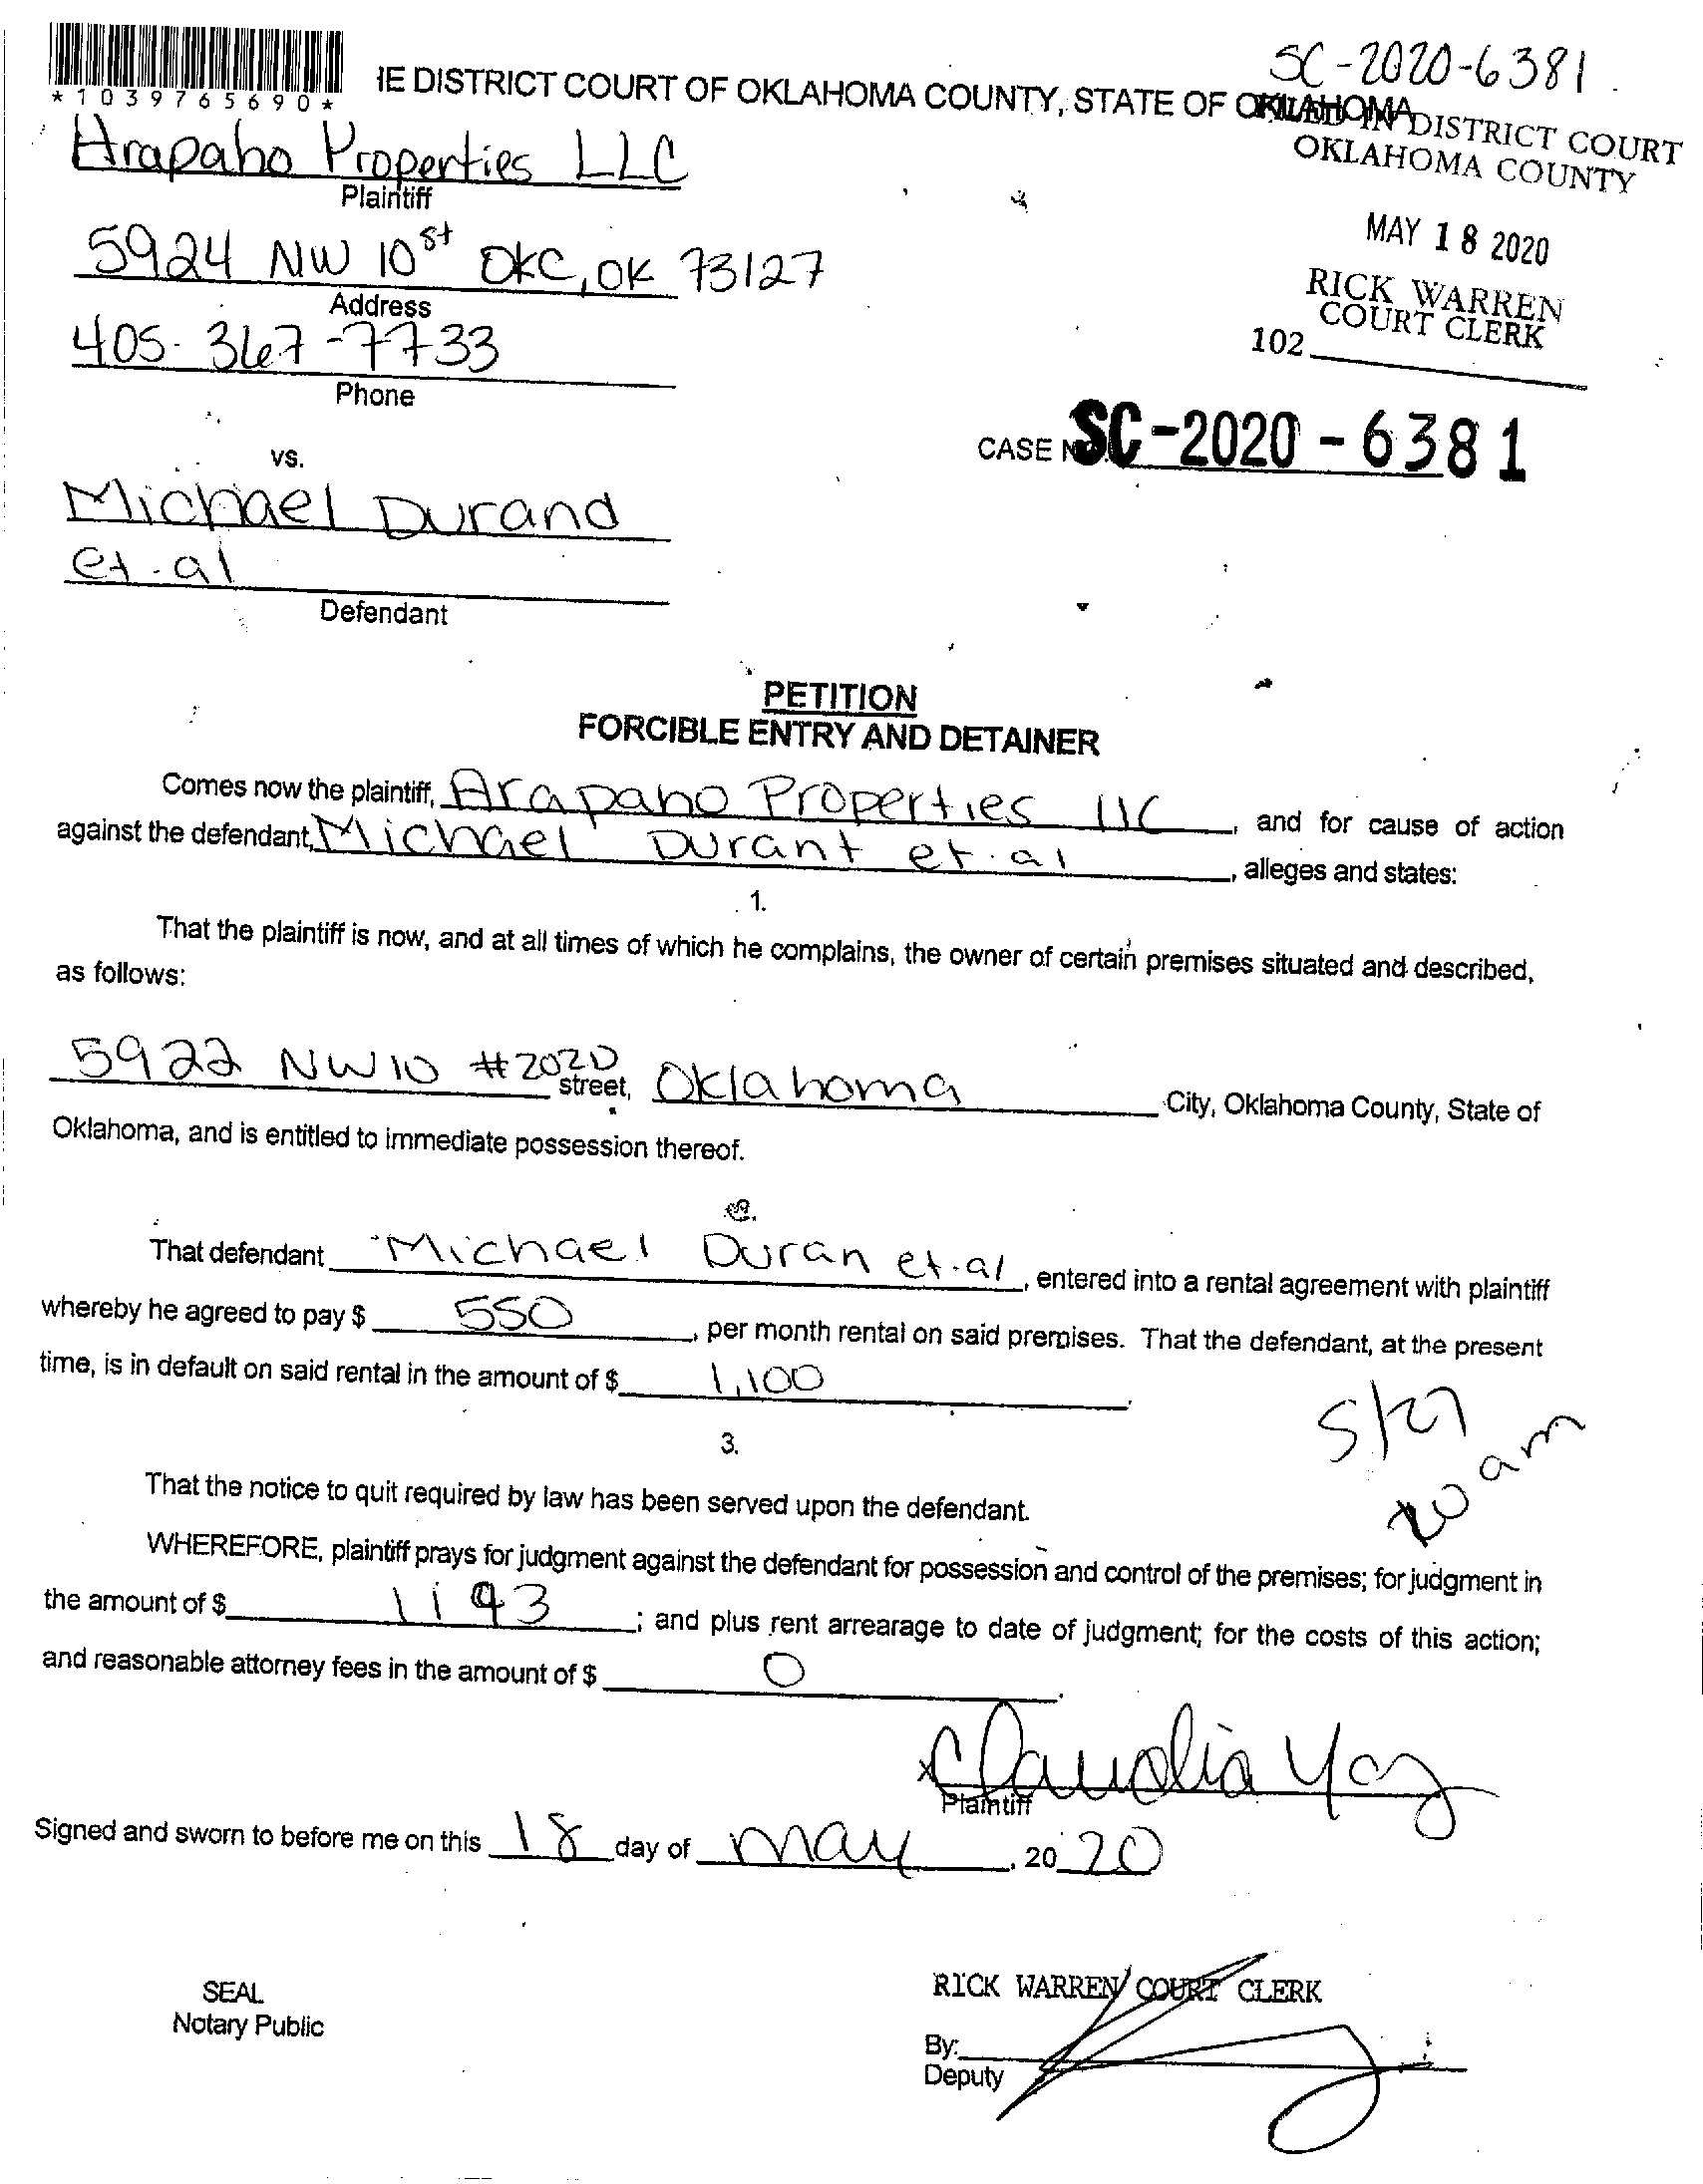 SC-2020-6381
*1039765690*
HE DISTRICT COURT OF OKLAHOMA COUNTY, STATE OF OKLAHOMA
FILED IN DISTRICT COURT
OKLAHOMA COUNTY
Arapaho Properties LLC
Plaintiff
MAY 18 2020
5924 NW 10 st OKC, OK 73127
Address
RICK WARREN
COURT CLERK
405-367-7733
102
Phone
CASE NO. SC-2020-6381
vs.
Michael Durand
et.al
Defendant
PETITION
FORCIBLE ENTRY AND DETAINER
Comes now the plaintiff, Arapaho Properties llC, and for cause of action
against the defendant, Michael Durant et.al, alleges and states:
1.
That the plaintiff is now, and at all times of which he complains, the owner of certain premises situated and described,
as follows:
5922 NW 10 #202D street, Oklahoma City, Oklahoma County, State of
Oklahoma, and is entitled to immediate possession thereof.
That defendant Michael Duran et.al, entered into a rental agreement with plaintiff
whereby he agreed to pay $ 550, per month rental on said premises. That the defendant, at the present
time, is in default on said rental in the amount of $ 1,100.
5/27
10 am
3.
That the notice to quit required by law has been served upon the defendant.
WHEREFORE, plaintiff prays for judgment against the defendant for possession and control of the premises; for judgment in
the amount of $ 1193; and plus rent arrearage to date of judgment; for the costs of this action;
and reasonable attorney fees in the amount of $ 0.
x Claudia
Plaintiff
Signed and sworn to before me on this 18 day of may, 20 20
SEAL
Notary Public
RICK WARREN COURT CLERK
By:
Deputy